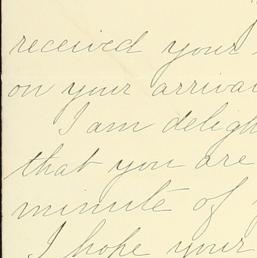 received your
on your arrival
I am deligh
that you are
minute of
I hope your